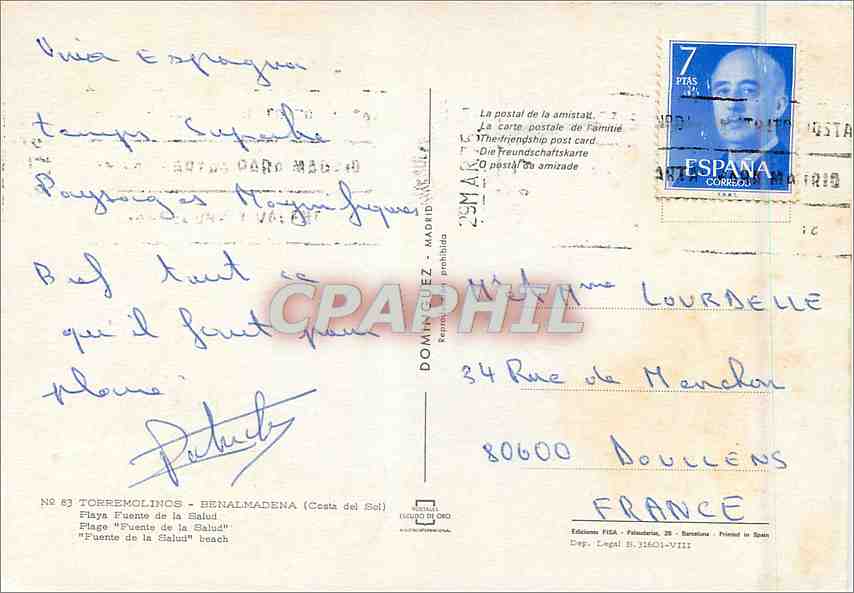 Viva Espagna
temps superbe
Paysages Magnifiques
Bref tout ce
qu'il faut pour
plaire
Patrick
Nº 83 TORREMOLINOS - BENALMADENA (Costa del Sol)
Playa Fuente de la Salud
Plage "Fuente de la Salud"
"Fuente de la Salud" beach
DOMINGUEZ - MADRID
Reproducción prohibida
CPAPHIL
POSTALES
ESCUDO DE ORO
La postal de la amistad
La carte postale de l'amitié
The friendship post card
Die Freundschaftskarte
O postal da amizade
29 MAR
7
PTAS
ESPAÑA
CORREOS
MADRID
Mr et Mme LOURDELLE
34 Rue de Menchon
80600 DOULLENS
FRANCE
Ediciones FISA - Palaudarias, 26 - Barcelona - Printed in Spain
Dep. Legal B. 31601-VIII